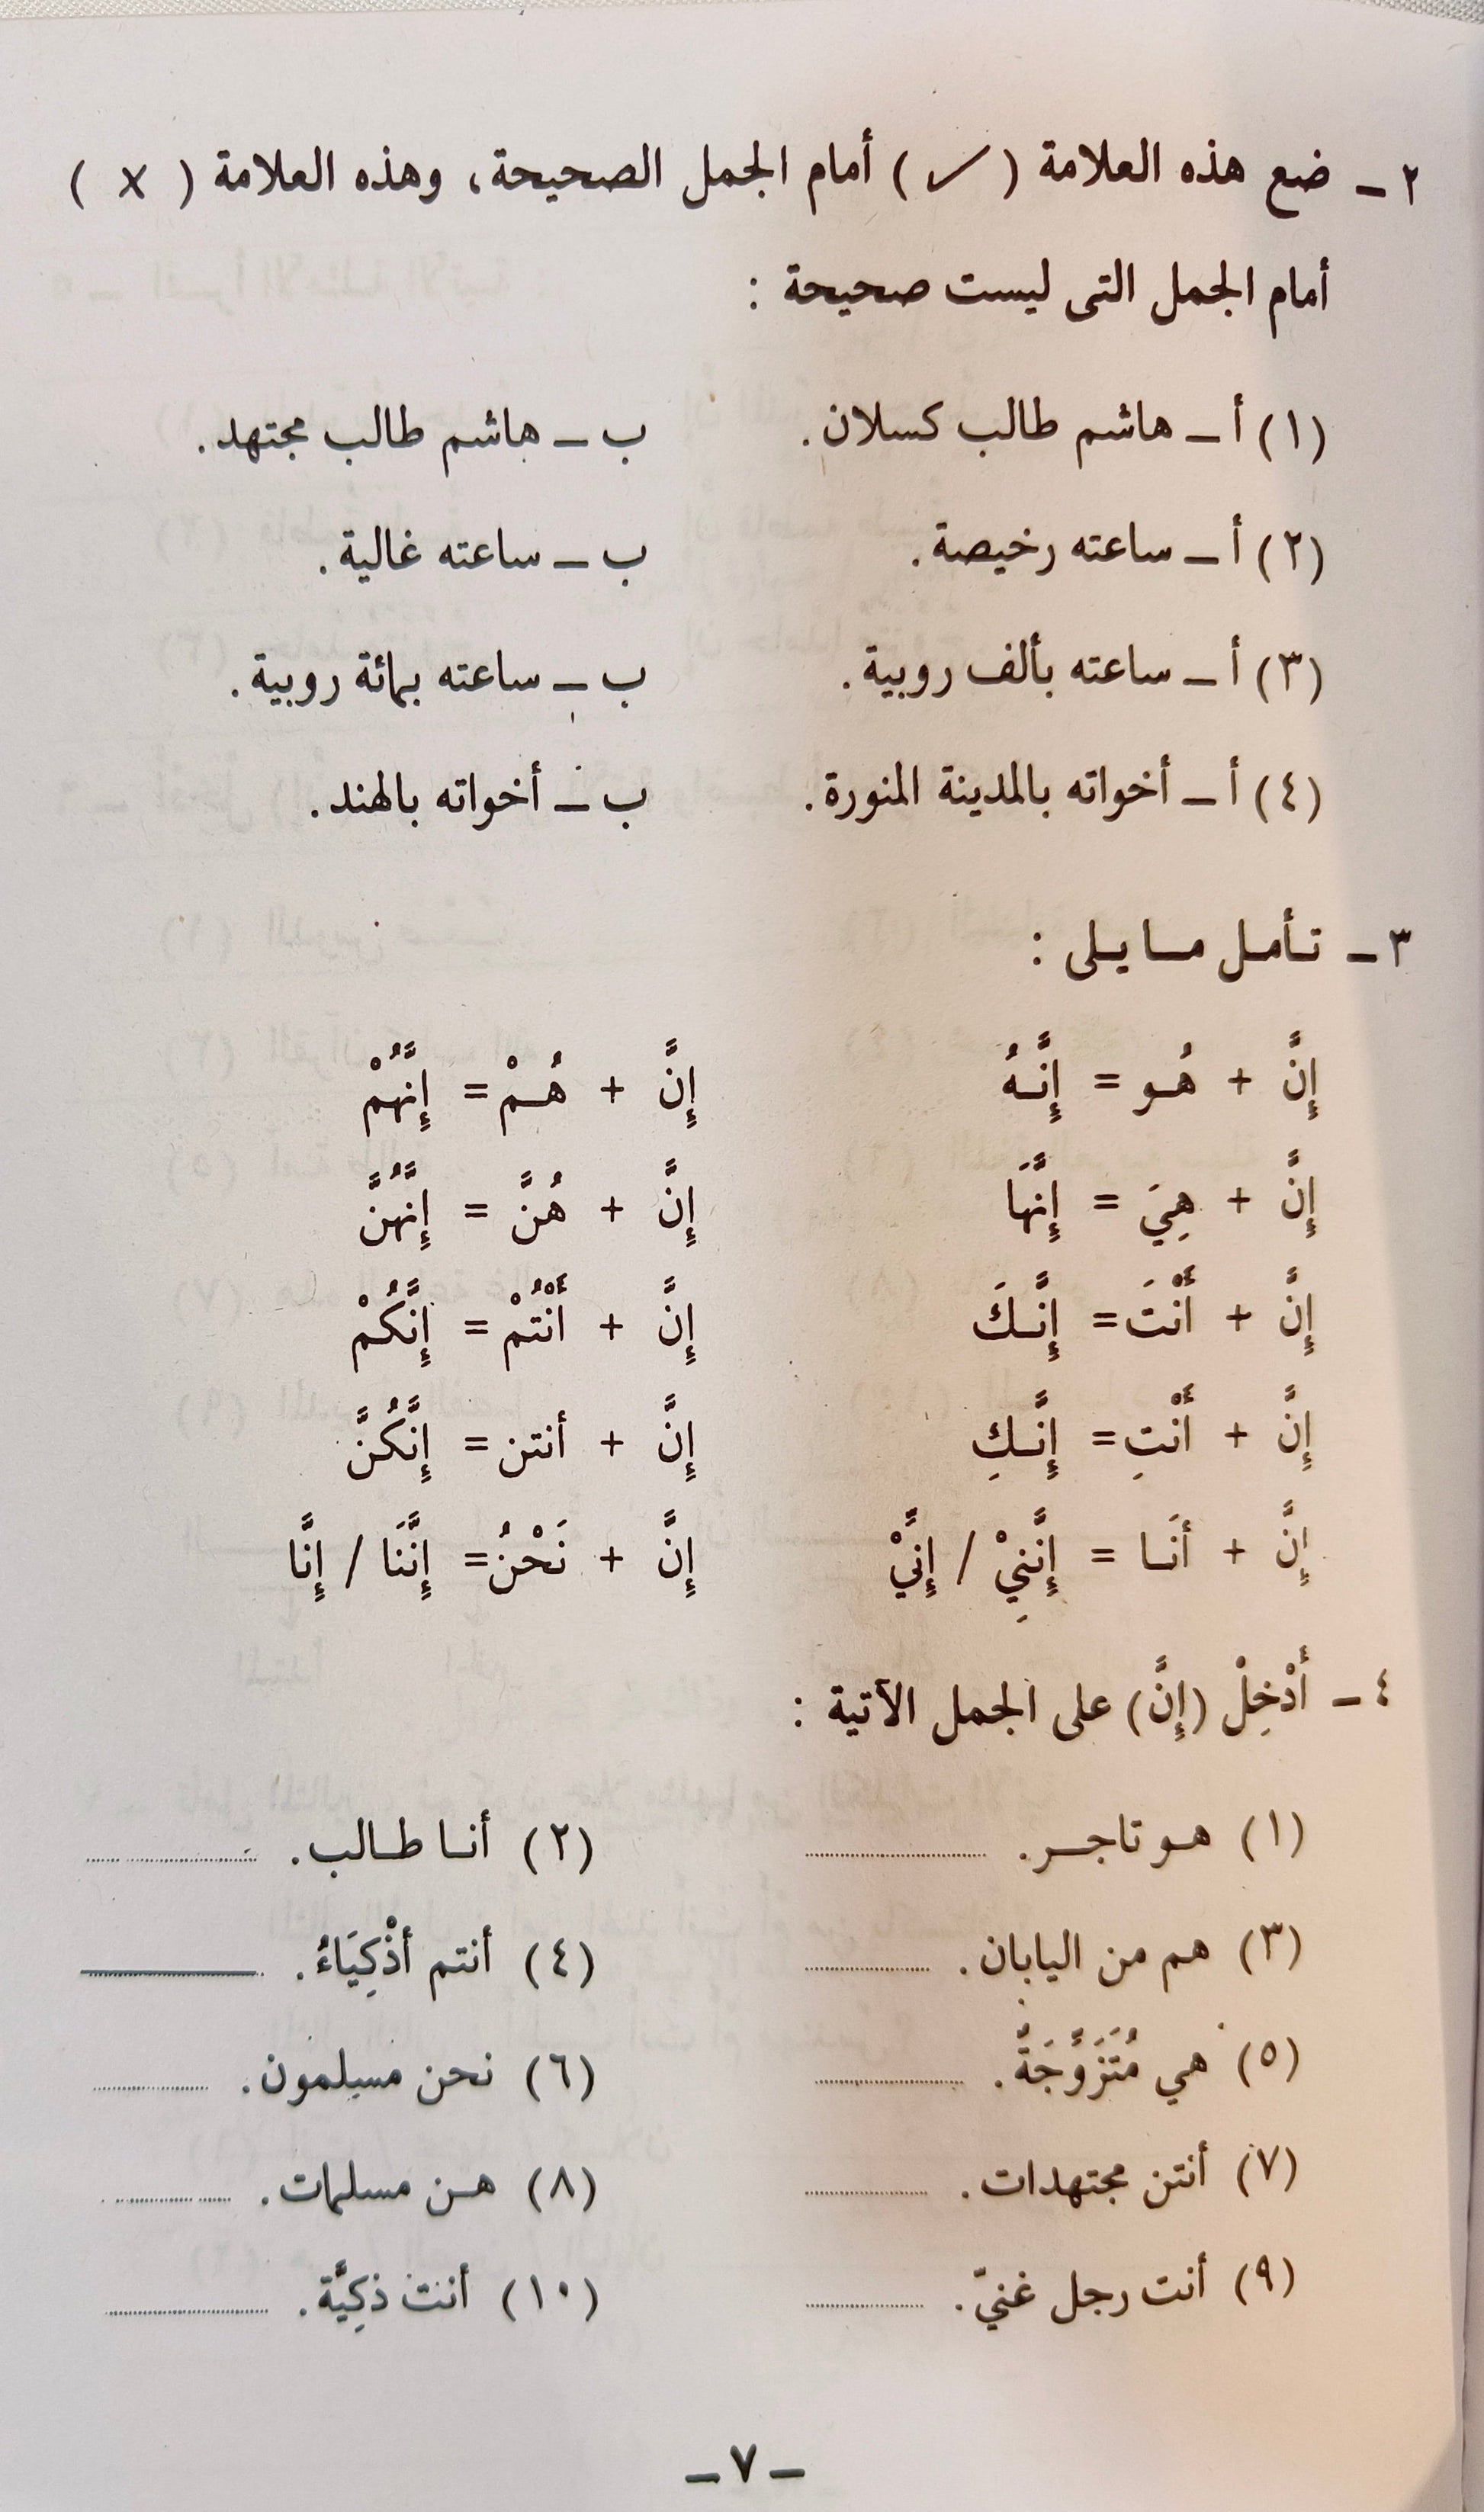 ٢ ـ ضع هذه العلامة ( ✓ ) أمام الجمل الصحيحة، وهذه العلامة ( × )
أمام الجمل التى ليست صحيحة :
(١) أ ـ هاشم طالب كسلان. ب ـ هاشم طالب مجتهد.
(٢) أ ـ ساعته رخيصة. ب ـ ساعته غالية.
(٣) أ ـ ساعته بألف روبية. ب ـ ساعته بمائة روبية.
(٤) أ ـ أخواته بالمدينة المنورة. ب ـ أخواته بالهند.
٣ ـ تأمل ما يلى :
إِنَّ + هُو = إِنَّهُ إِنَّ + هُمْ = إِنَّهُمْ
إِنَّ + هِيَ = إِنَّهَا إِنَّ + هُنَّ = إِنَّهُنَّ
إِنَّ + أَنْتَ = إِنَّكَ إِنَّ + أَنْتُمْ = إِنَّكُمْ
إِنَّ + أَنْتِ = إِنَّكِ إِنَّ + أنتن = إِنَّكُنَّ
إِنَّ + أنَا = إِنَّنِيْ / إِنِّيْ إِنَّ + نَحْنُ = إِنَّنَا / إِنَّا
٤ ـ أَدْخِلْ (إِنَّ) على الجمل الآتية :
(١) هو تاجر. .............. (٢) أنا طالب. ..............
(٣) هم من اليابان. .............. (٤) أنتم أذْكِيَاءُ. ..............
(٥) هي مُتَزَوِّجَةٌ. .............. (٦) نحن مسلمون. ..............
(٧) أنتن مجتهدات. .............. (٨) هن مسلمات. ..............
(٩) أنت رجل غنيّ. .............. (١٠) أنت ذكِيَّة. ..............
ـ ٧ ـ